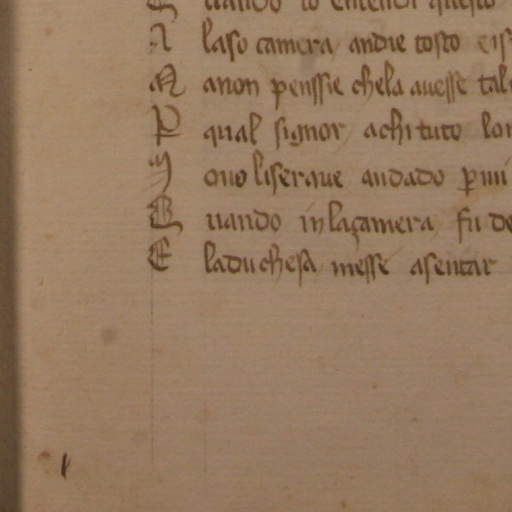 uando lo entendi questo
A laso camera andie tosto eis
M anon penssie chela auesse tal
P qual signor achi tuto lo
M ono liseraue andado p mi
Q uando in laçamera fu de
E laduchesa messe asentar